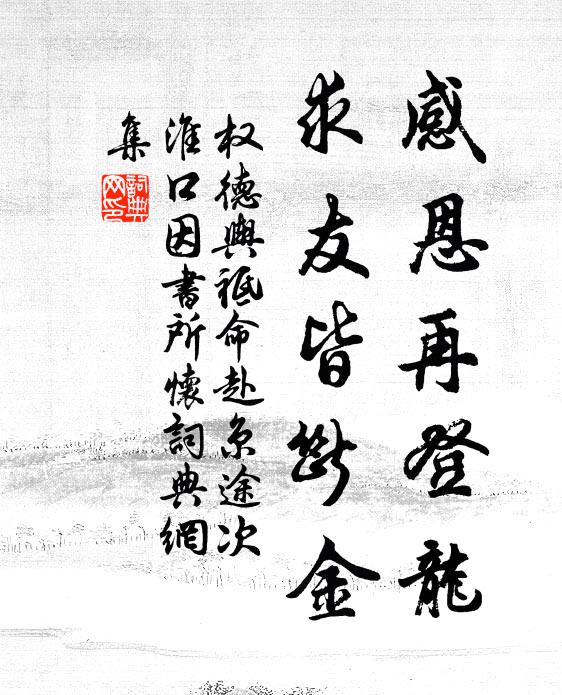 感恩再登龍
求友皆斷金
权德輿祗命赴京途次
淮口因書所懷詞典網
集
詞典
网印